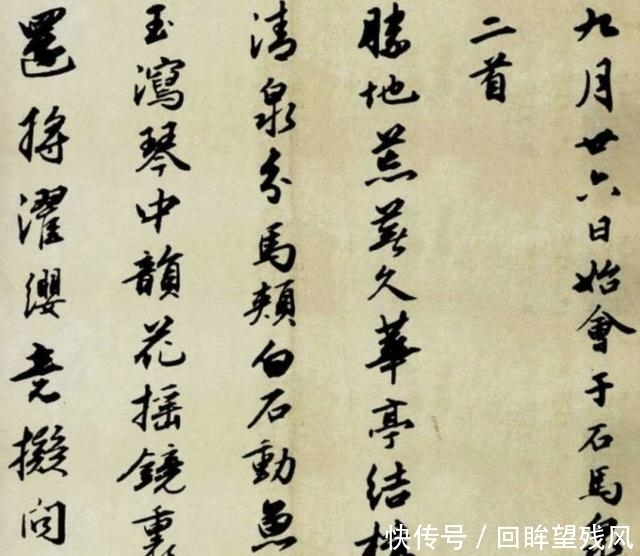 九月廿六日始會于石馬
二首
勝地荒蕪久華亭結
清泉分馬頰白石動魚
玉瀉琴中韻花搖鏡裏
還將濯纓意擬問
快传号/回眸望残风